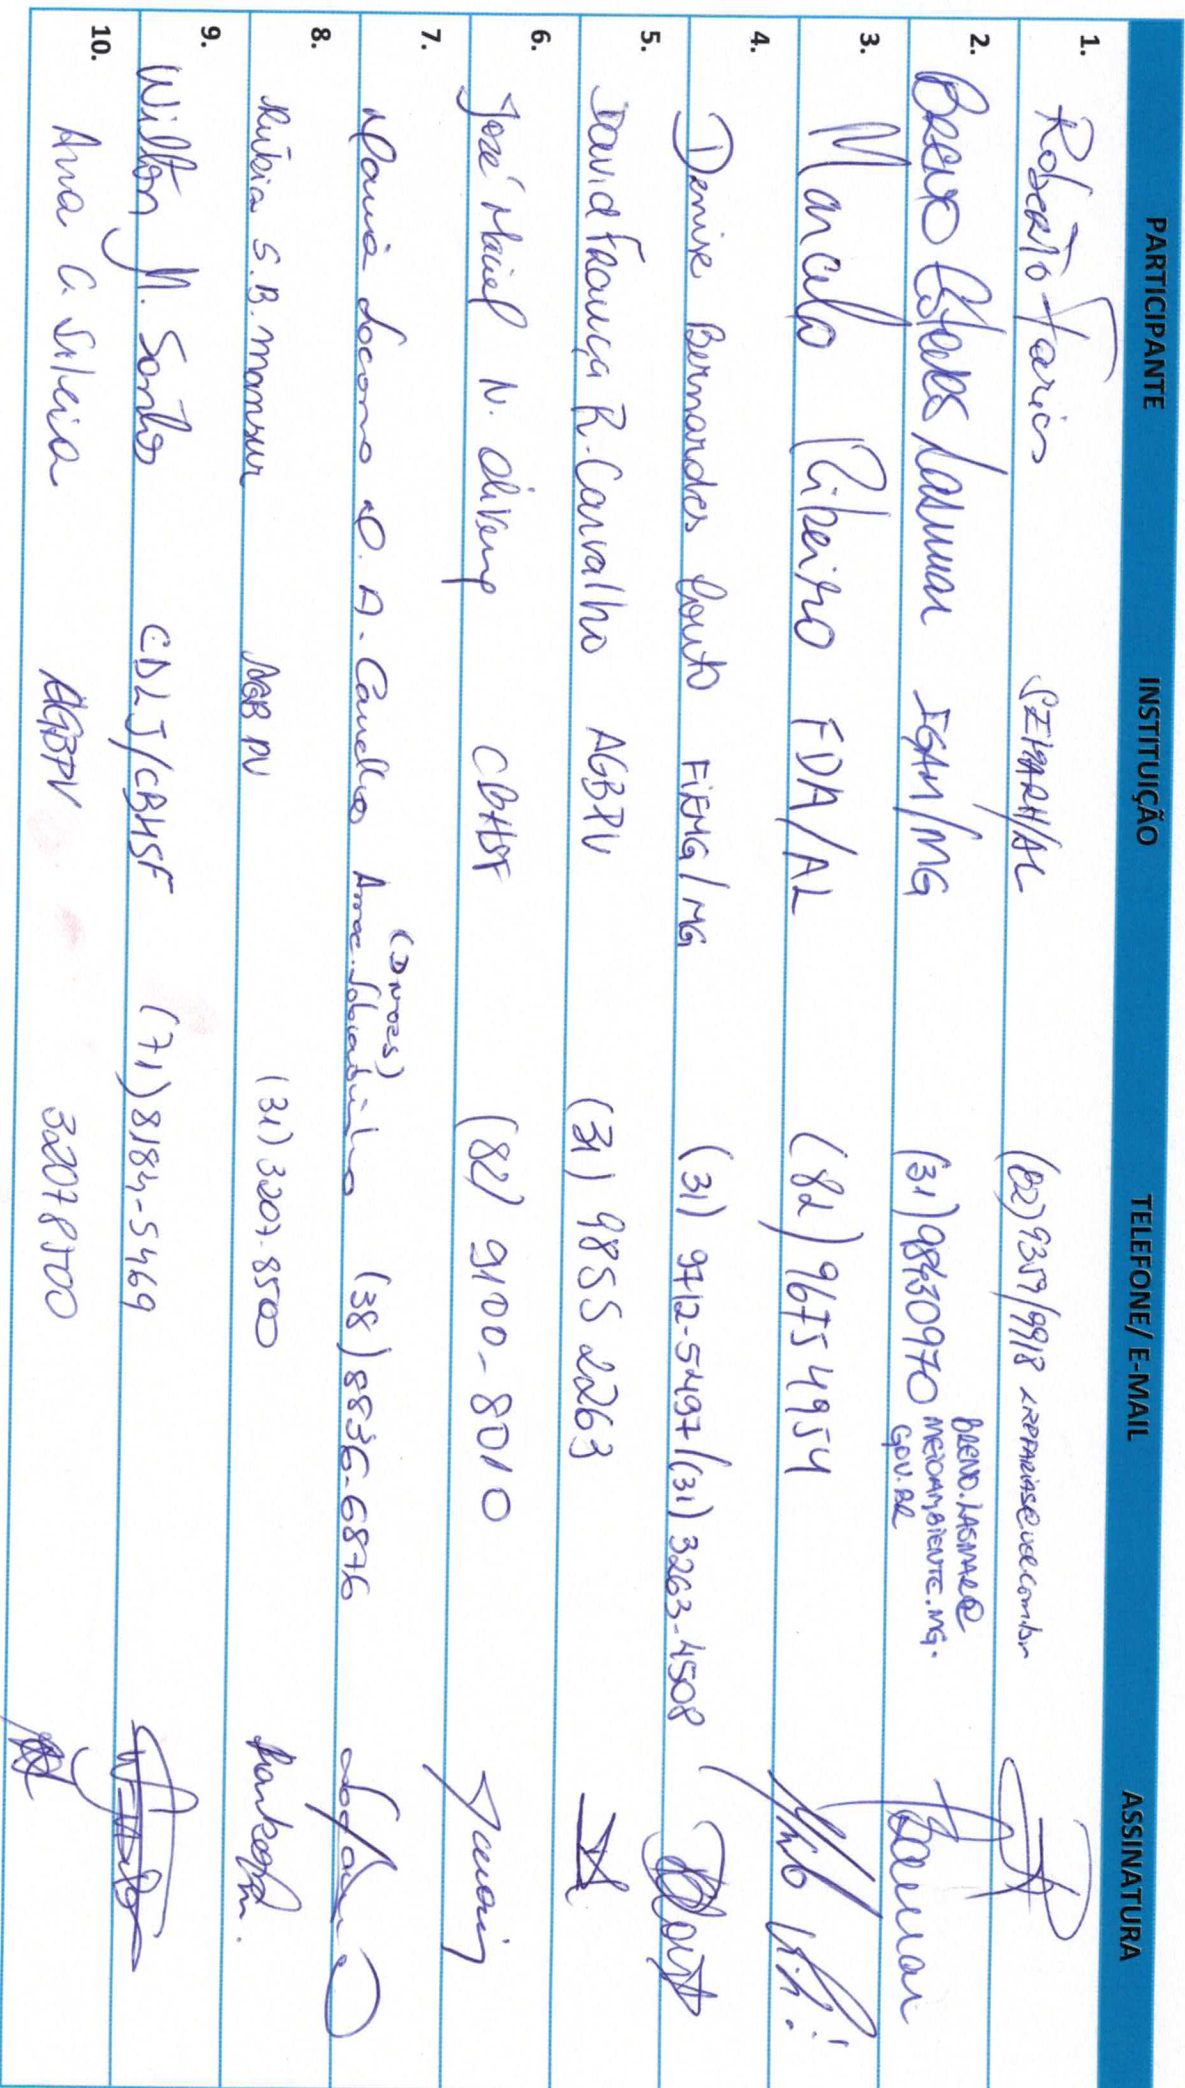 PARTICIPANTE INSTITUIÇÃO TELEFONE/ E-MAIL ASSINATURA
1. Roberto Farias SEMARH/AL (82) 9359/9918
2. Breno Esteves Lasmar IGAM/MG (31) 98430970 BRENO.LASMAR@
MEIOAMBIENTE.MG.
GOV.BR
3. Marcelo Ribeiro FDA/AL (82) 9675 4954
4. Denise Bernardes Couto FIEMG/MG (31) 9712-5497/(31) 3263-4508
5. David França R. Carvalho AGBPV (31) 9855 2263
6. José Maciel N. Oliveira CBHSF (82) 9100-8010
7. Maria A. (38) 8836-6876
8. Rúbia S.B. Mansur AGB PV (31) 3207-8500
9. Wilton Santos CDLJ/CBHSF (71) 8184-5469
10. Ana C. Silveia AGBPV 32078500